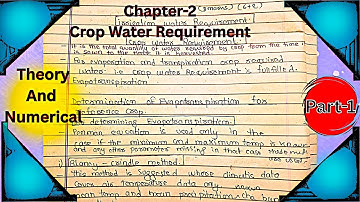 Chapter-2
Crop Water Requirement
Irrigation water Requirement
Crop Water Requirement
It is the total quantity of water required by crop from the time
is sown to the time it is harvested
For evaporation and transpiration crop required
water i.e crop water Requirement is fulfilled.
Evapotranspiration
Determination of Evapotranspiration for
Reference crop
determining Evapotranspiration
Penman equation is used only in the
case if the minimum and maximum temp is known
and any other parameter missing in that case
Blaney-criddle method
This method is suggested where climatic data
covers air temperature data only
mean temp and mean precipitation
Theory
And
Numerical
Part-1